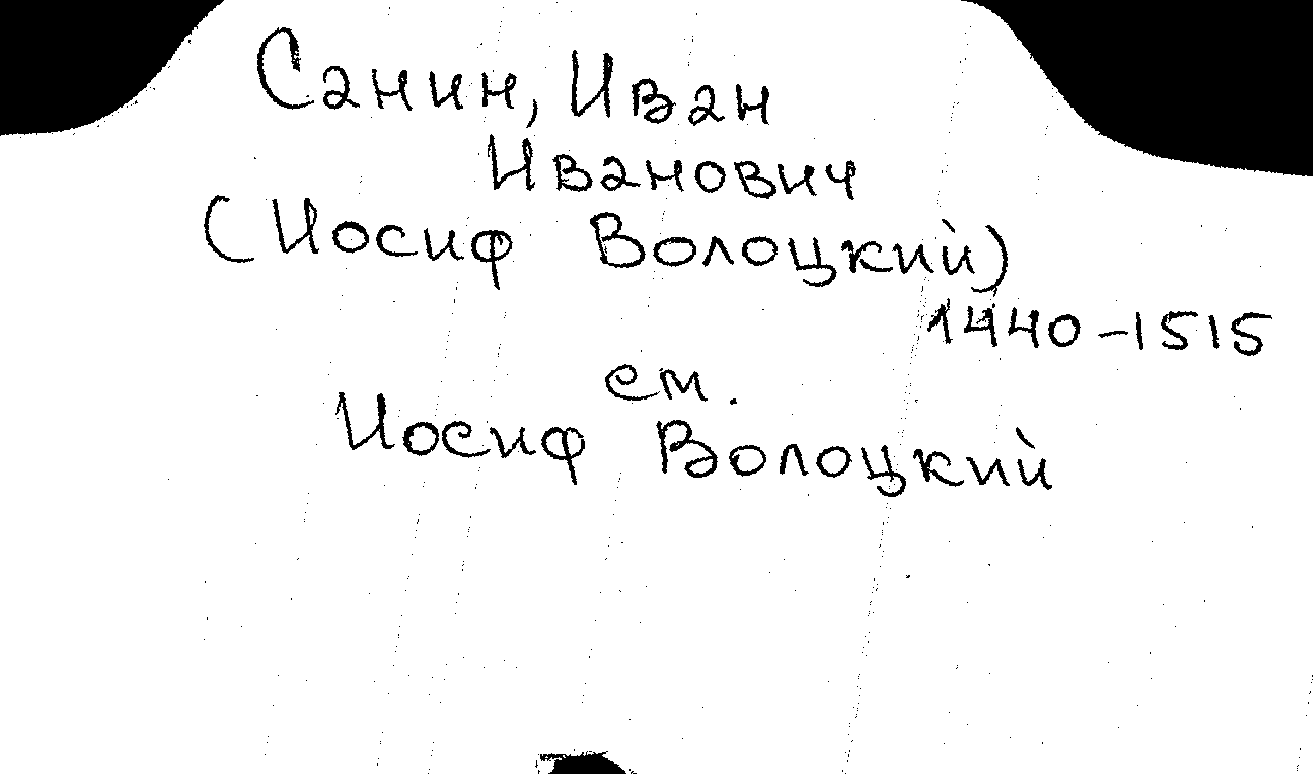 Санин, Иван
Иванович
(Иосиф Волоцкий)
1440-1515
см.
Иосиф Волоцкий